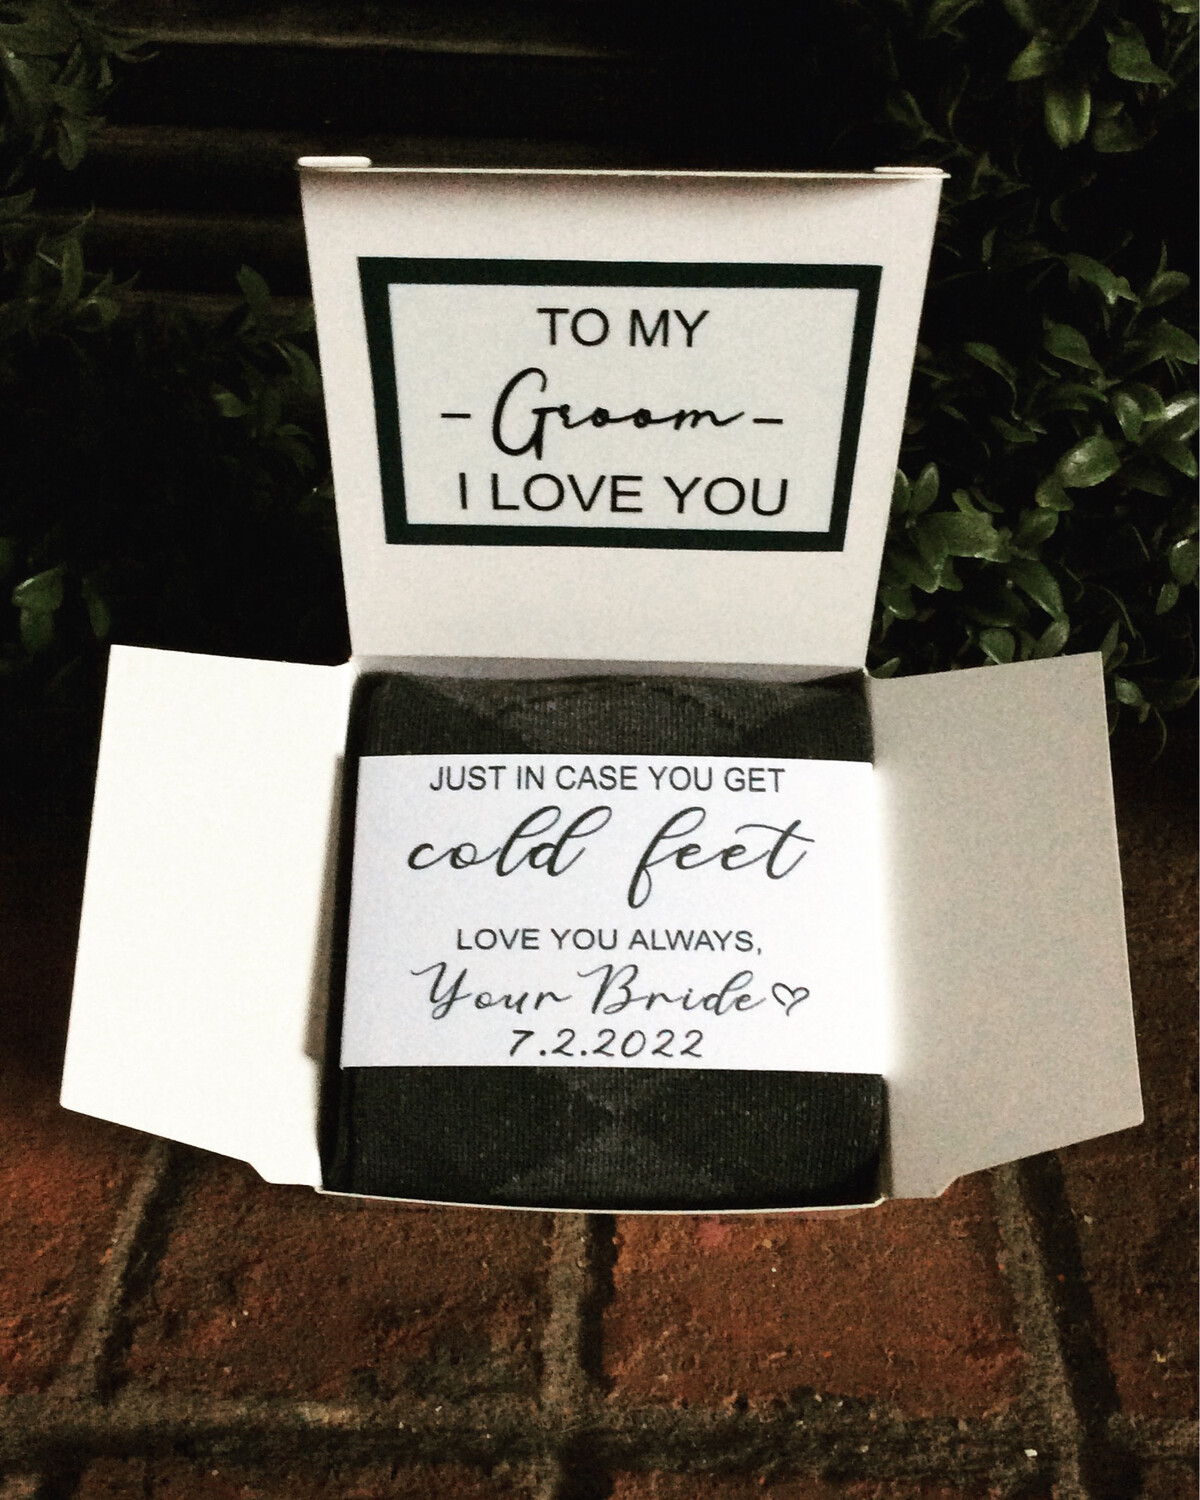 TO MY
- Groom -
I LOVE YOU
JUST IN CASE YOU GET
cold feet
LOVE YOU ALWAYS,
Your Bride♡
7.2.2022